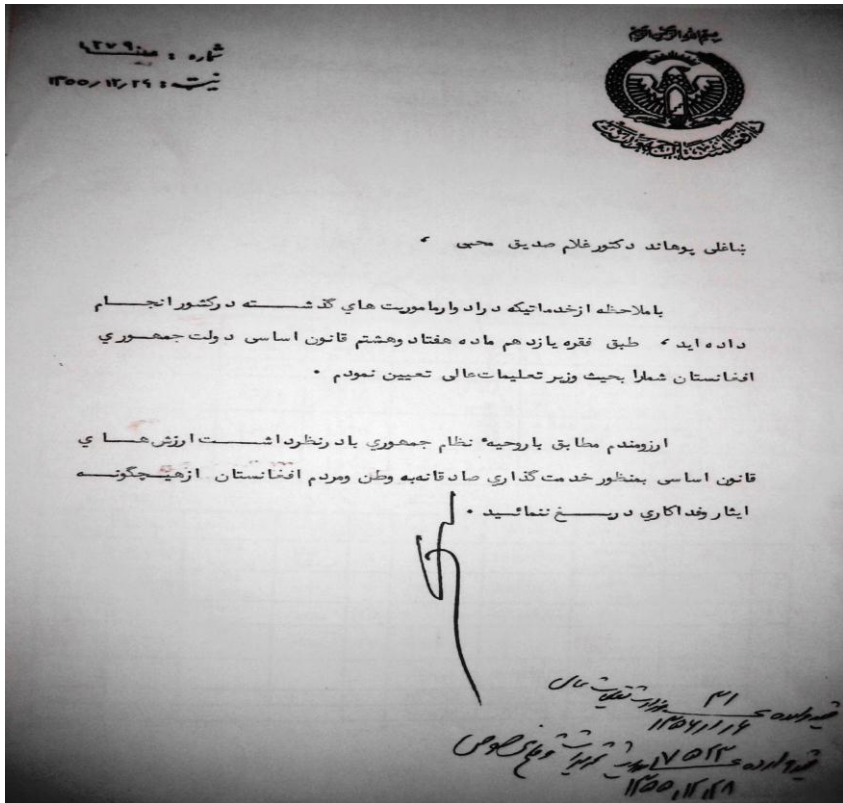 بسم الله الرحمن الرحیم
د افغانستان جمهوریت
شماره :
۱۳۵۵/۱۲/۲۴
ښاغلی پوهاند دکتور غلام صدیق محبی ،
با ملاحظه از خدماتیکه در ادوار ماموریت های گذشته در کشور انجام
داده اید ، طبق فقره یازدهم ماده هفتاد وهشتم قانون اساسی دولت جمهوری
افغانستان شمارا بحیث وزیر تعلیمات عالی تعیین نمودم .
ارزومندم مطابق با روحیهٔ نظام جمهوری با در نظر داشت ارزش های
قانون اساسی بمنظور خدمت گذاری صادقانه به وطن ومردم افغانستان از هیچگونه
ایثار وفداکاری دریغ ننمائید .
۴۱
وزارت تعلیمات عالی
۱۳۵۶/۱/۶
۱۷۵۲۳
۱۳۵۵/۱۲/۲۸